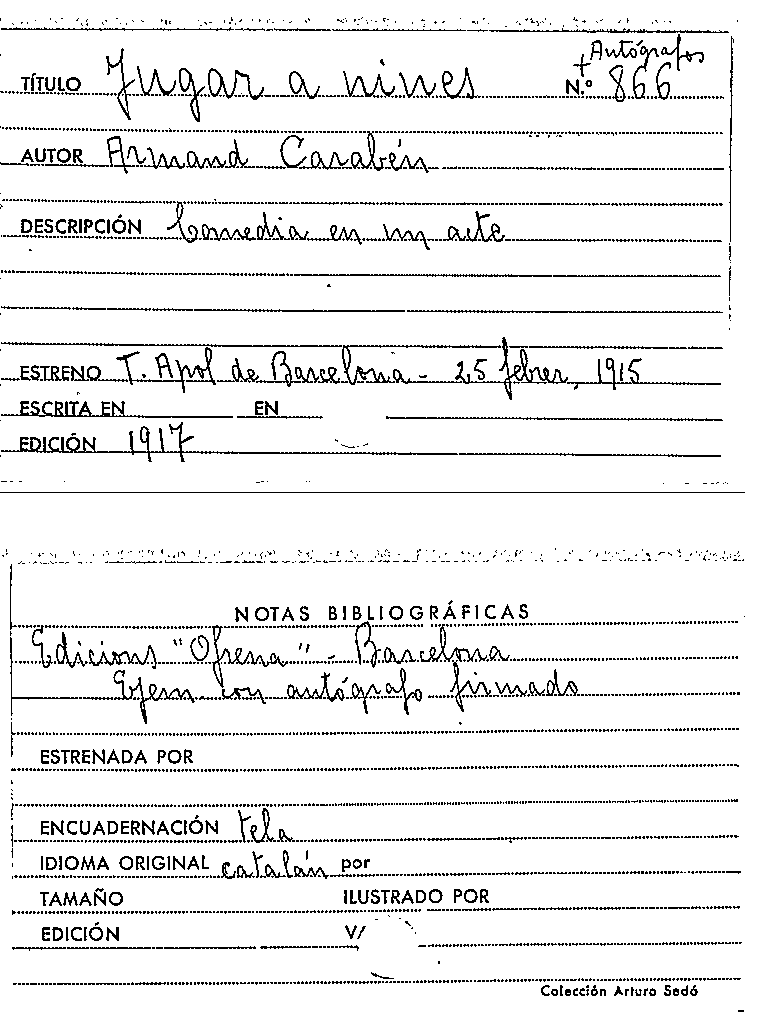 + Autógrafos
TÍTULO Jugar a nines N.º 866
AUTOR Armand Carabén
DESCRIPCIÓN Comedia en un acte
ESTRENO T. Apol de Barcelona - 25 febrer, 1915
ESCRITA EN EN
EDICIÓN 1917
NOTAS BIBLIOGRÁFICAS
Edicions "Ofrena" - Barcelona
Ejem. con autógrafo firmado
ESTRENADA POR
ENCUADERNACIÓN tela
IDIOMA ORIGINAL catalán por
TAMAÑO ILUSTRADO POR
EDICIÓN V/
Colección Arturo Sedó